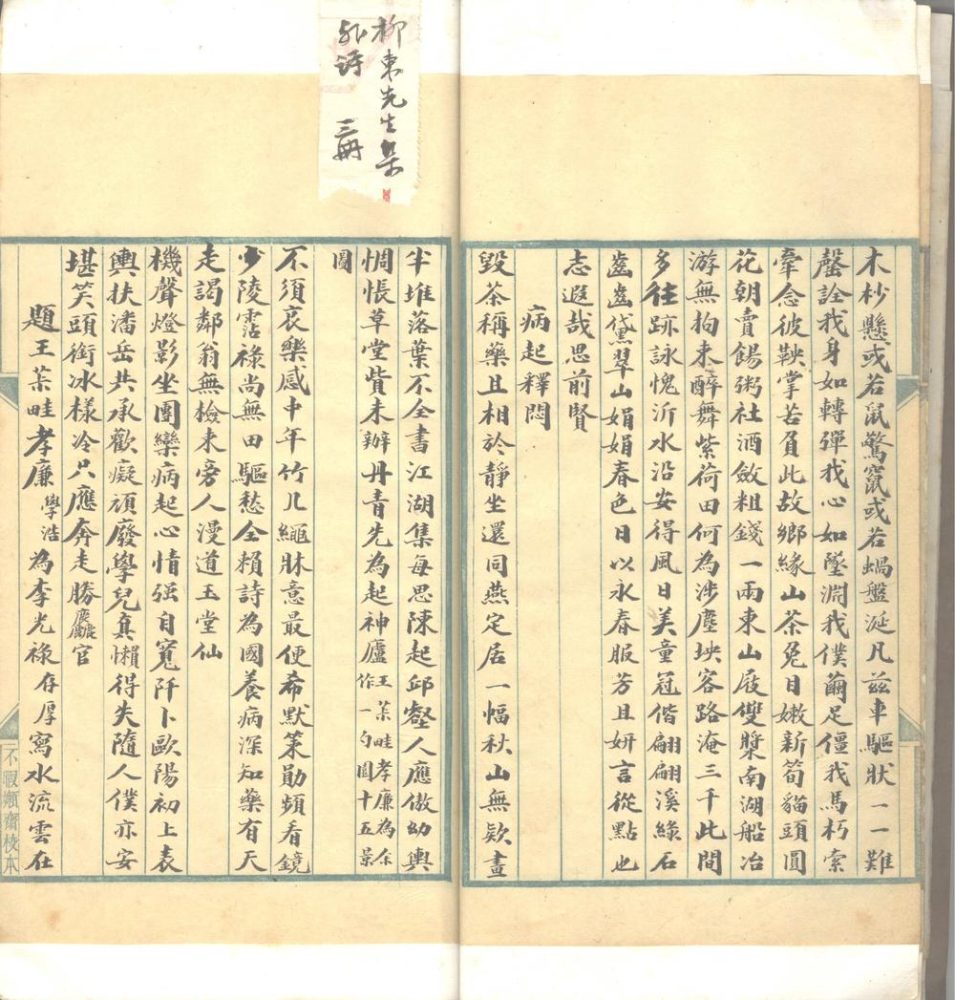 柳東先生集
詩
三冊
木杪懸或若鼠驚竄或若蝸盤涎凡茲車驅狀一一難
罄詮我身如轉彈我心如墜淵我僕繭足僵我馬朽索
牽念彼鞅掌苦負此故鄉緣山茶兔目嫩新筍貓頭圓
花朝賣餳粥社酒斂粗錢一兩東山屐雙槳南湖船冶
游無拘束醉舞紫荷田何為涉塵坱客路淹三千此間
多往跡詠愧沂水沿安得風日美童冠偕翩翩溪綠石
齒齒黛翠山娟娟春色日以永春服芳且妍言從點也
志遐哉思前賢
病起釋悶
毀茶稱藥且相於靜坐還同燕定居一幅秋山無款畫
半堆落葉不全書江湖集每思陳起邱壑人應倣幼輿
惆悵草堂貲未辦丹青先為起神廬王茱畦孝廉為余作一勺園十五景
圖
不須哀樂感中年竹几繩牀意最便希默策勛頻看鏡
少陵霑祿尚無田驅愁全賴詩為國養病深知藥有天
走謁鄰翁無檢束旁人漫道玉堂仙
機聲燈影坐團欒病起心情强自寬阡卜歐陽初上表
輿扶潘岳共承歡癡頑廢學兒真懶得失隨人僕亦安
堪笑頭銜冰樣冷只應奔走勝麤官
題王茱畦孝廉學浩為李光祿存厚寫水流雲在
不暇嬾齋校本